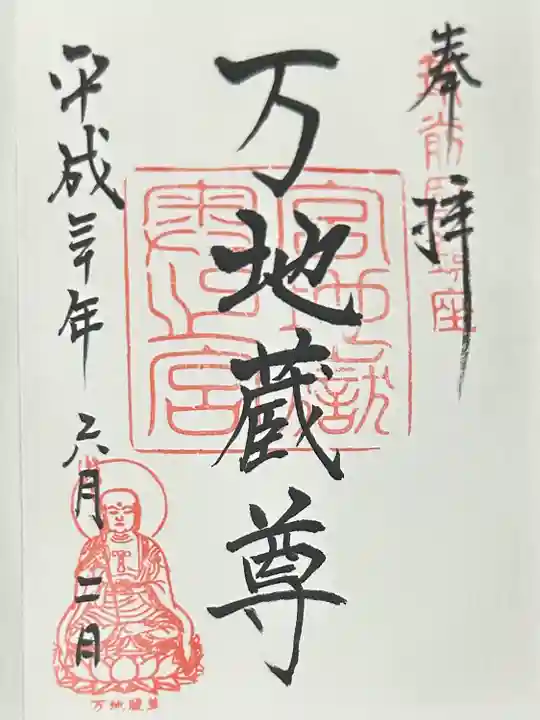 奉拝
万地蔵尊
平成三十年六月二日
宮地嶽
万地蔵尊